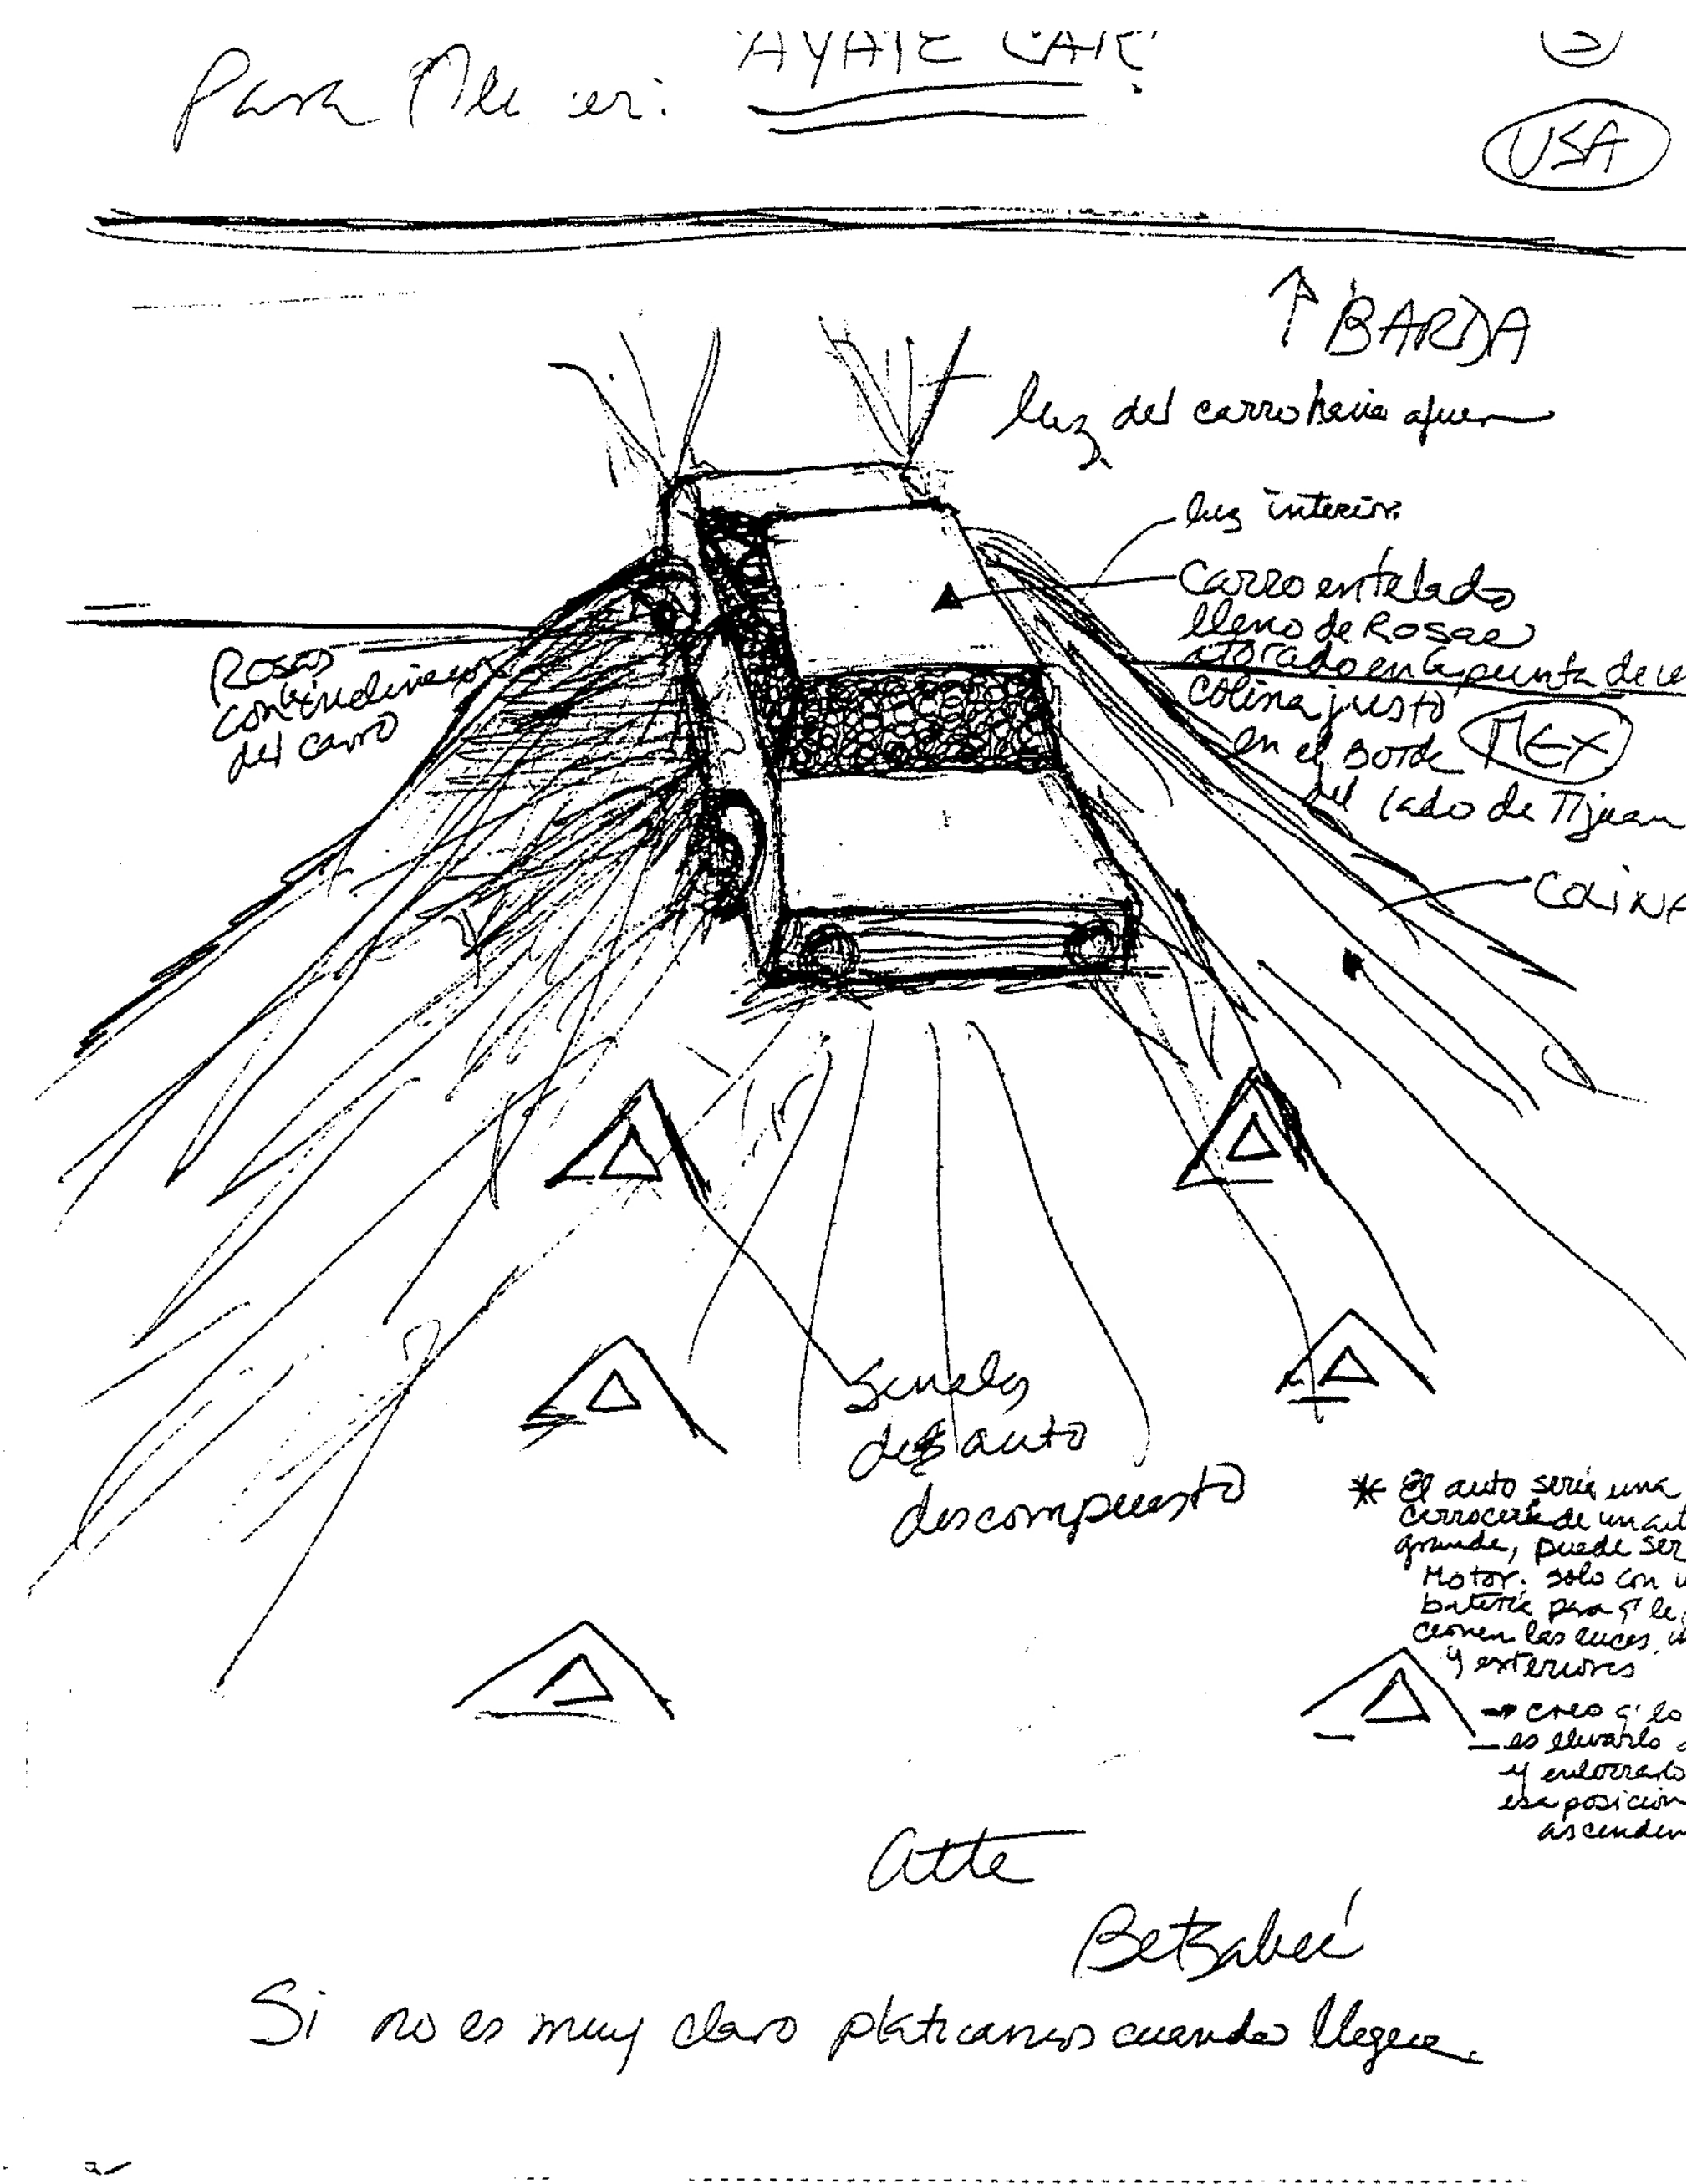 Para
AYATE CAR
USA
↑ BARDA
luz del carro hacia afuer
luz interior.
Carro entelado
lleno de Rosas
atorado en la punta de
colina justo
en el Borde MEX
del lado de Tijuan
COLINA
Rosas
del carro
senales
de auto
descompuesto
* El auto seria una
carroceria de un aut
grande, puede ser
Motor. solo con
bateria para q' le
cionen las luces
y exteriores
→ creo q' lo
es elevarlo
y
esa posicion
ascenden
Atte
Betsabeé
Si no es muy claro platicamos cuando llegue.